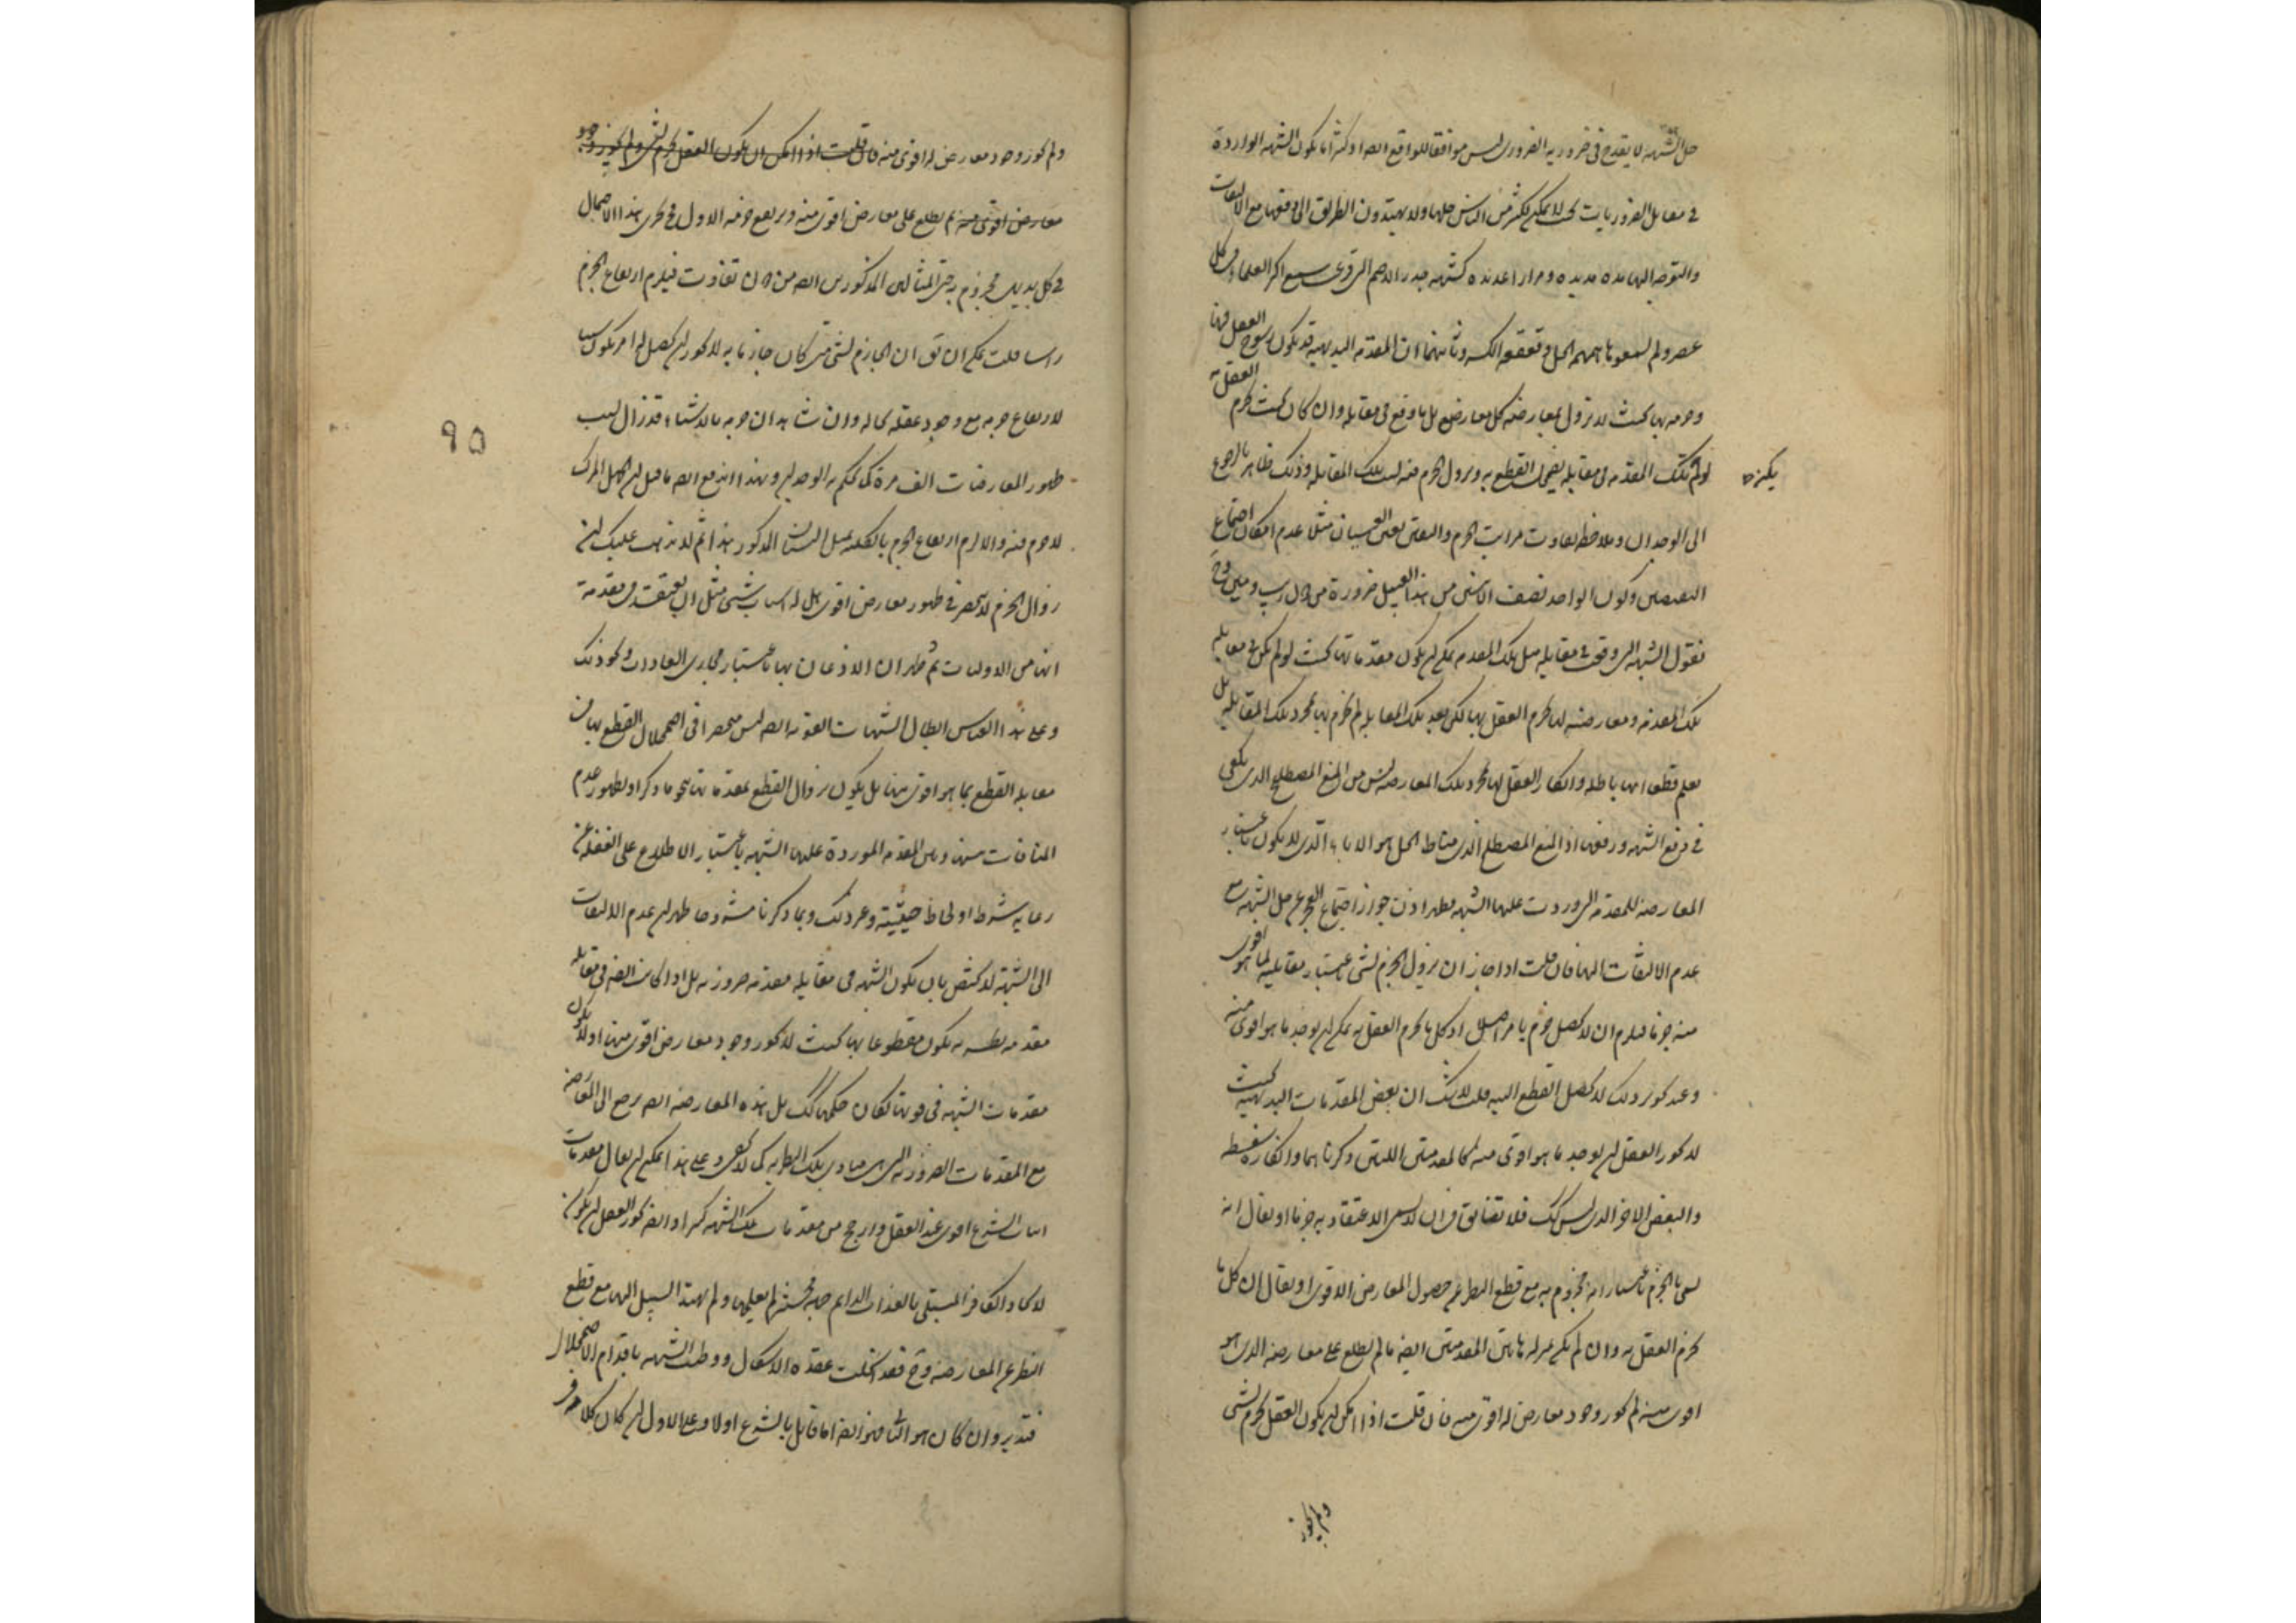 حل الشبهه لا يقدح في ضروريه الضروري ليس موافقا للواقع ايضا اذ كثيرا ما يكون الشبهه الواردة
في مقابل الضروريات بحيث لا يمكن لكثير من الناس حلها ولا يهتدون الطريق الى دفعها مع الالتفات
والتوجه اليها مدة مديده ومرارا عديده كشبهه جذر الاصم التي قرع سمع اكثر العلماء في كل
عصر ولم ان المقدمه البديهيه قد يكون رسوخ العقل فيها
وجزمه بها بحيث لا يزول بمعارضه كل معارض بل ما وقع في مقابله وان كان بحيث يجزم العقل به
لو لم تكن تلك المقدمه في مقابله يضمحل القطع به ويزول الجزم منه بسبب تلك المقابله وذلك ظاهر بالرجوع
يكنه
الى الوجدان وملاحظه تفاوت مراتب الجزم واليقين مثلا عدم امكان اجتماع
النقيضين وكون الواحد نصف الاثنين من هذا القبيل ضرورة من دون ريب ومين وح
فنقول الشبهه التي وقعت في مقابله مثل تلك المقدمه يمكن ان يكون مقدماتها بحيث لو لم يكن في مقابله
تلك المقدمه ومعارضه لها يجزم العقل بها لكن بعد تلك المقابله لم يجزم بها بمجرد تلك المقابله بل
يعلم قطعا انها باطله وانكار العقل لها بمجرد تلك المعارضه ليس من المنع المصطلح الذي يكفي
في دفع الشبهه ورفعها اذ المنع المصطلح الذي مناط الحل هو الاباء الذي لا يكون باعتبار
المعارضه للمقدمه التي وردت عليها الشبهه فظهر اذن جواز اجتماع العجز عن حل الشبهه مع
عدم الالتفات اليها فان قلت اذا جاز ان يزول الجزم بشيء باعتبار مقابلته لما هو اقوى
منه جزما فيلزم ان لا يحصل جزم بامر اصلا اذ كل ما يجزم العقل به يمكن ان يوجد ما هو اقوى منه
وعند تجويز ذلك لا يحصل القطع البته قلت لا شك ان بعض المقدمات البديهيه بحيث
لا يجوز العقل ان يوجد ما هو اقوى منه كالمقدمتين اللتين ذكرناهما وانكاره سفسطه
والبعض الاخر الذي ليس كك فلا تضايق في ان لا يسمى الاعتقاد به جزما او يقال انه
يسمى بالجزم باعتبار انه مجزوم به مع قطع النظر عن حصول المعارض الاقوى او يقال ان كل ما
يجزم العقل به وان لم يكن بمنزله هاتين المقدمتين ايضا ما لم يطلع على معارضه الذي هو
اقوى منه لم يجوز وجود معارض له اقوى منه فان قلت اذا امكن ان يكون العقل يجزم بشيء
ولم يجوز
ولم يجوز وجود معارض له اقوى منه فان قلت اذا امكن ان يكون العقل يجزم بشيء ولم يجوز وجود
معارض اقوى منه ثم يطلع على معارض اقوى منه ويرتفع جزمه الاول فيجري هذا الاحتمال
في كل بديهي مجزوم به حتى المثالين المذكورين ايضا من دون تفاوت فيلزم ارتفاع الجزم
راسا قلت يمكن ان يق ان الجازم بشيء متى كان جازما به لا يجوز ان يحصل له امر يكون سببا
لارتفاع جزمه مع وجود عقله بحاله وان شاهد ان جزمه بالاشياء قد زال بسبب
ظهور المعارضات الف مرة كما يحكم به الوجدان وبهذا اندفع ايضا ما قيل ان الجهل المركب
لا جزم فيه والا لزم ارتفاع الجزم بالكليه بمثل البيان المذكور هذا ثم لا يذهب عليك ان
زوال الجزم لا ينحصر في ظهور معارض اقوى بل له اسباب شتى مثل ان يعتقد في مقدمة
انها من الاوليات ثم ظهر ان الاذعان بها باعتبار مجاري العادات ونحو ذلك
وعلى هذا القياس ابطال الشبهات القويه ايضا ليس منحصرا في اضمحلال القطع بها في
مقابله القطع بما هو اقوى منها بل يكون بزوال القطع بمقدماتها بنحو ما ذكر او بظهور عدم
المنافات بينه وبين المقدمه الموردة عليها الشبهه باعتبار الاطلاع على الغفله عن
رعايه شرط او لحاظ حيثية وغير ذلك وبما ذكرنا مشروحا ظهر ان عدم الالتفات
الى الشبهة لا يختص بان يكون الشبهه في مقابله مقدمه ضروريه بل اذا كانت ايضا في مقابله
مقدمه نظريه يكون مقطوعا بها بحيث لا يجوز وجود معارض اقوى منها او لا يكون
مقدمات الشبهه في قوتها لكان حكمها كك بل هذه المعارضه ايضا يرجع الى المعارضه
مع المقدمات الضروريه التي هي مبادي تلك النظريه كما لا يخفى وعلى هذا يمكن ان يقال مقدمات
اثبات الشرع اقوى عند العقل وارجح من مقدمات تلك الشبهه كثيرا وايضا يجوز العقل ان يكون
الطريق السبيل اليها مع قطع
النظر عن المعارضه وح فقد انحلت عقدة الاشكال ووطئت الشبهه باقدام الاضمحلال
فتدبر وان كان هو الثاني فهو ايضا اما قائل بالشرع اولا وعلى الاول ان كان كلامه في
90